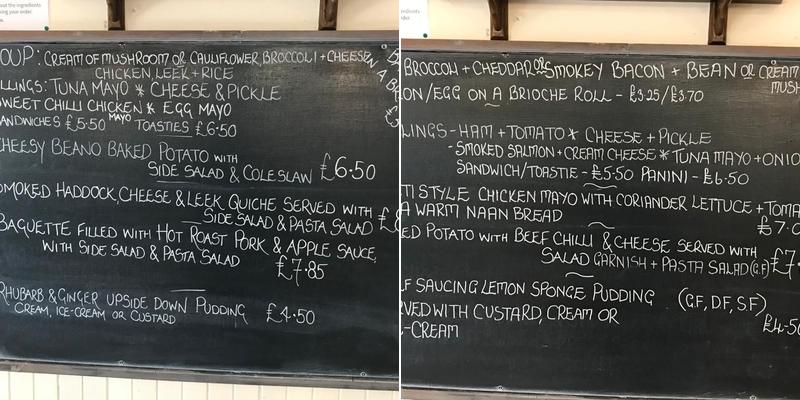 OUP: CREAM OF MUSHROOM OR CAULIFLOWER, BROCCOLI + CHEESE
CHICKEN, LEEK + RICE
LLINGS: TUNA MAYO * CHEESE & PICKLE
WEET CHILLI CHICKEN MAYO * EGG MAYO
ANDWICHES £5.50 TOASTIES £6.50
HEESY BEANO BAKED POTATO WITH
SIDE SALAD & COLESLAW £6.50
SMOKED HADDOCK, CHEESE & LEEK QUICHE SERVED WITH
SIDE SALAD & PASTA SALAD £
BAGUETTE FILLED WITH HOT ROAST PORK & APPLE SAUCE,
WITH SIDE SALAD & PASTA SALAD £7.85
RHUBARB & GINGER UPSIDE DOWN PUDDING £4.50
CREAM, ICE-CREAM OR CUSTARD
BROCCOLI + CHEDDAR OR SMOKEY BACON + BEAN OR CREAM
MUSH
ON/EGG ON A BRIOCHE ROLL - £3.25/£3.70
LINGS - HAM + TOMATO * CHEESE + PICKLE
- SMOKED SALMON + CREAM CHEESE * TUNA MAYO + ONIO
SANDWICH/TOASTIE - £5.50 PANINI - £6.50
TI STYLE CHICKEN MAYO WITH CORIANDER LETTUCE + TOMA
A WARM NAAN BREAD £7.0
ED POTATO WITH BEEF CHILLI & CHEESE SERVED WITH
SALAD GARNISH + PASTA SALAD (G.F) £7.
F SAUCING LEMON SPONGE PUDDING (G.F, D.F, S.F)
RVED WITH CUSTARD, CREAM OR £4.50
-CREAM